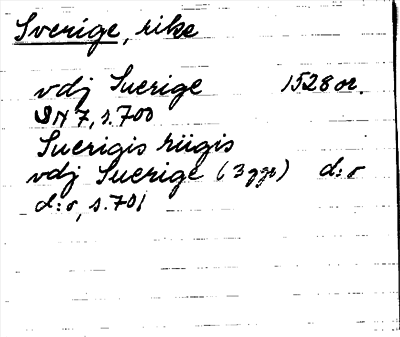 Sverige, rike
vdj Suerige 1528 or.
SN 7, s. 700
Suerigis rügis
vdj Suerige (3 ggr) d:o
d:o, s. 701